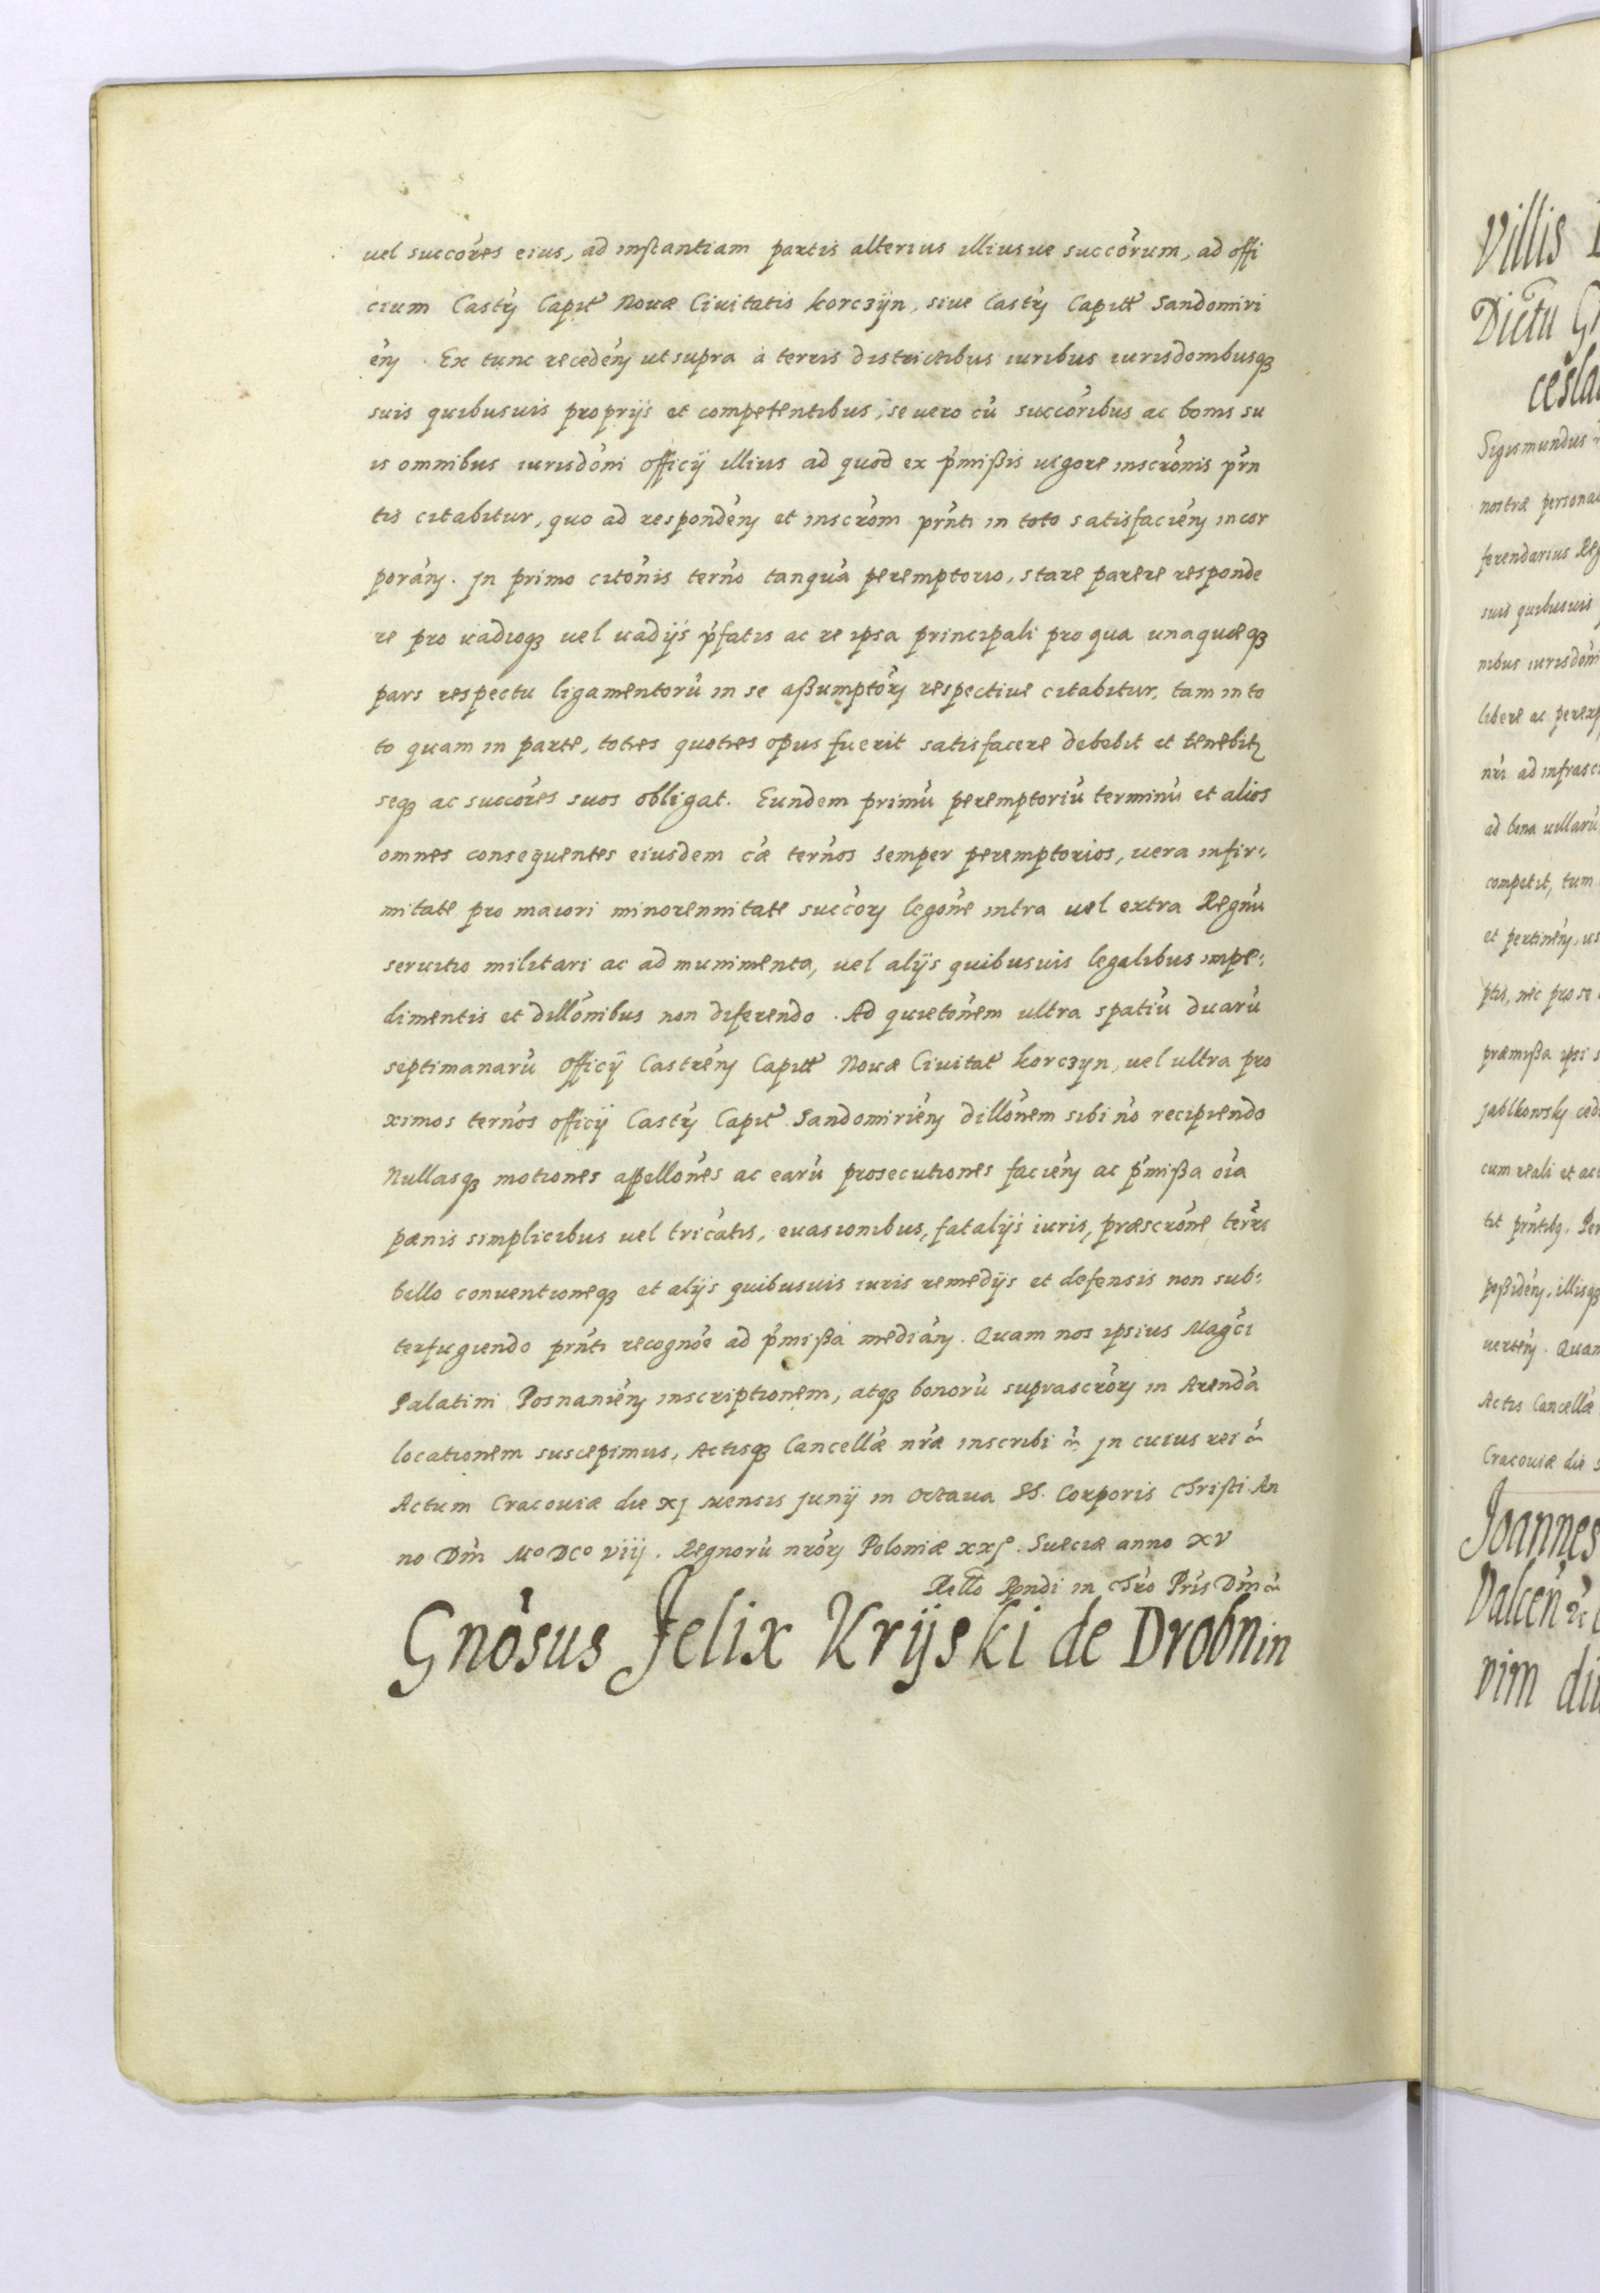 uel succores eius, ad instantiam partis alterius illiusue succorum, ad offi
cium Castrȝ Capit Nouæ Ciuitatis Korczÿn, siue Castrȝ Capitt Sandomiri
enȝ. Ex tunc recedenȝ ut supra à terris districtibus iuribus iurisdombusqȝ
suis quibusuis proprijs et competentibus, se uero cũ succoribus ac bonis su
is omnibus iurisdoni officij illius ad quod ex p̃mißis uigore inscronis prn
tis citabitur, quo ad respondenȝ et inscrom prnti in toto satisfacienȝ incor
poranȝ. In primo citonis terno tanquã peremptorio, stare parere responde
re pro uadioqȝ uel uadijs p̃fatis ac re ipsa principali pro qua unaquæqȝ
pars respectu ligamentorũ in se aßumptorȝ respectiue citabitur, tam in to
to quam in parte, toties quoties opus fuerit satisfacere debebit et tenebitȝ
seqȝ ac succores suos obligat. Eundem primũ peremptoriũ terminũ et alios
omnes consequentes eiusdem cæ ternos semper peremptorios, uera infir=
mitate pro maiori minorennitate succorȝ legone intra uel extra Regnũ
seruitio militari ac ad munimenta, uel alijs quibusuis legalibus impe=
dimentis et dillonibus non diferendo. Ad quietonem ultra spatiũ duarũ
septimanarũ officij Castrenȝ Capitt Nouæ Ciuitat Korczyn, uel ultra pro
ximos ternos officij Castrȝ Capit Sandomirienȝ dillonem sibi no recipiendo
Nullasqȝ motiones appellones ac earũ prosecutiones facienȝ ac p̃mißa oia
pænis simplicibus uel tricatis, euasionibus, fatalijs iuris, præscrone terræ
bello conuentioneqȝ et alijs quibusuis iuris remedijs et defensis non sub=
terfugiendo prnti recognoe ad p̃mißa medianȝ. Quam nos ipsius Magci
Palatini Posnanienȝ inscriptionem, atqȝ bonorũ suprascrorȝ in Arendã
locationem suscepimus, Actisqȝ Cancellæ nræ inscribi &c. In cuius rei &c.
Actum Cracouiæ die xj mensis Junij in octaua SS. Corporis Christi An
no Dm̃ Mº DCº viij. Regnorũ nrorȝ Poloniæ xxj. Sueciæ anno XV
Rello Rondi in Chro Pris Dm̃ &c.
Gnosus Felix Krijski de Drobnin
Villis
Dictu
Sigismundus
nostræ
ferendarius
suis quibusuis
nibus iurisdom
libere ac
nri ad
ad bona uillarũ
competit, tum
et pertinenȝ
ptis, nec pro se
præmißa ipsi
Jablkowskȝ
cum reali et
tit
poßidenȝ, illisqȝ
Actis Cancellæ
Cracouiæ die
Joannes
Valcen